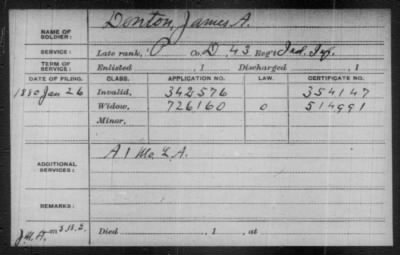 NAME OF SOLDIER: Donton, James A.
SERVICE: Late rank, P Co. D, 43 Reg't Ind. Inf.
TERM OF SERVICE: Enlisted , 1 Discharged , 1
DATE OF FILING. CLASS. APPLICATION NO. LAW. CERTIFICATE NO.
1880 Jan 26 Invalid, 342576 354147
Widow, 726160 o 514991
Minor,
ADDITIONAL SERVICES: A 1 Mo. L. A.
REMARKS:
Died , 1 , at